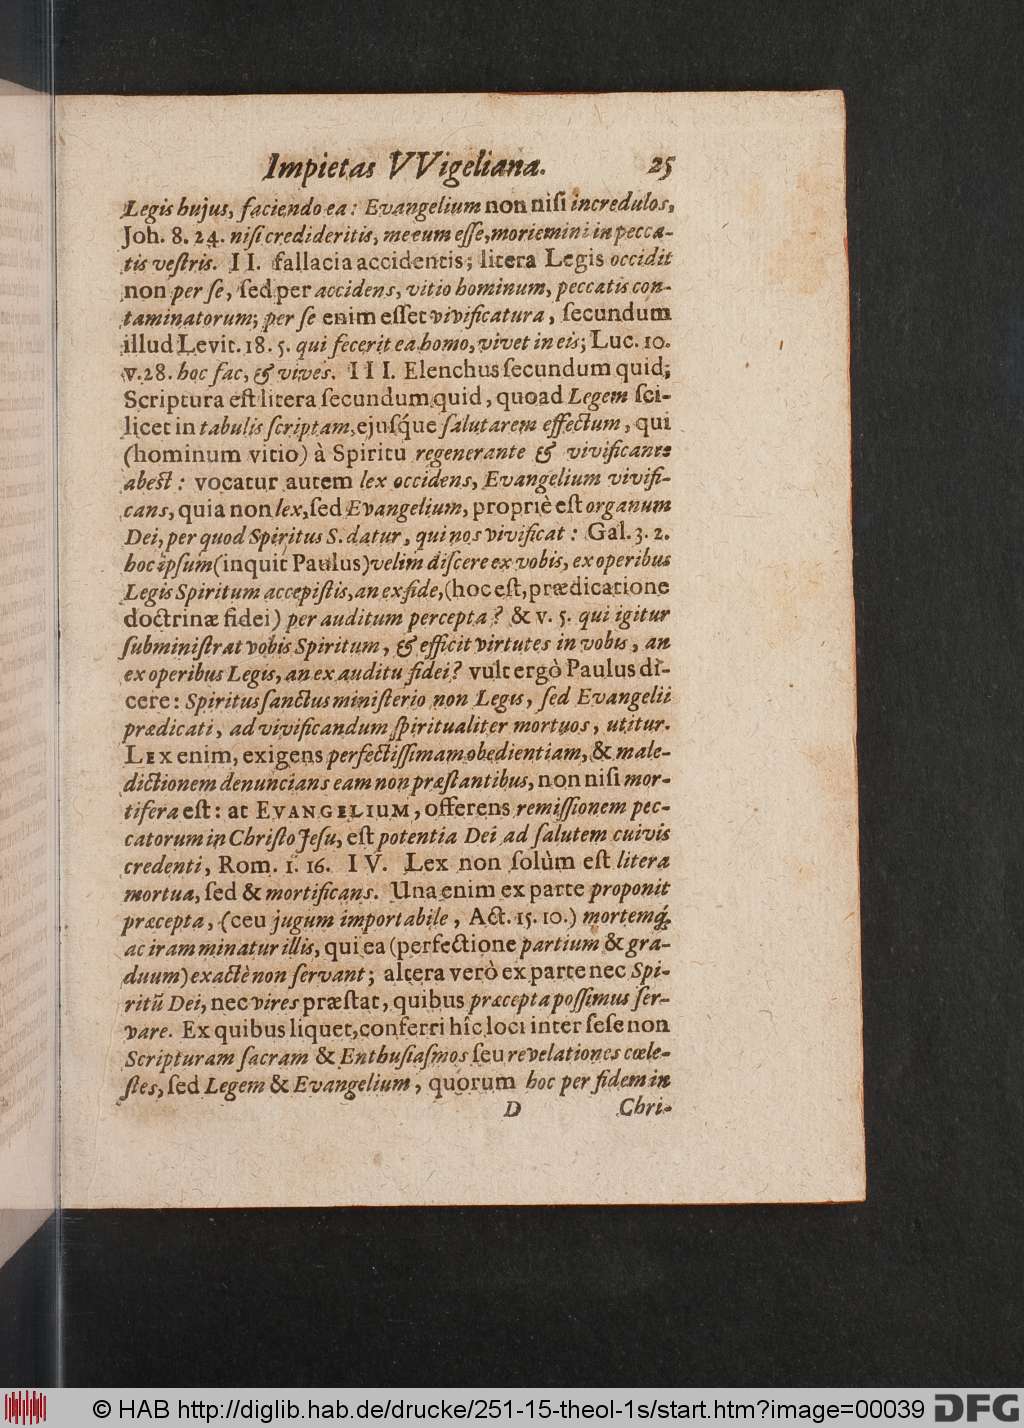 Impietas VVigeliana. 25
Legis hujus, faciendo ea: Evangelium non nisi incredulos,
Joh. 8. 24. nisi credideritis, me eum esse, moriemini in pecca-
tis vestris. II. fallacia accidentis; litera Legis occidit
non per se, sed per accidens, vitio hominum, peccatis con-
taminatorum; per se enim esset vivificatura, secundum
illud Levit. 18. 5. qui fecerit ea homo, vivet in eis; Luc. 10.
v. 28. hoc fac, & vives. III. Elenchus secundum quid;
Scriptura est litera secundum quid, quoad Legem sci-
licet in tabulis scriptam, ejusq́ue salutarem effectum, qui
(hominum vitio) à Spiritu regenerante & vivificante
abest: vocatur autem lex occidens, Evangelium vivifi-
cans, quia non lex, sed Evangelium, propriè est organum
Dei, per quod Spiritus S. datur, qui nos vivificat: Gal. 3. 2.
hoc ipsum (inquit Paulus) velim discere ex vobis, ex operibus
Legis Spiritum accepistis, an ex fide, (hoc est, prædicatione
doctrinæ fidei) per auditum percepta? & v. 5. qui igitur
subministrat vobis Spiritum, & efficit virtutes in vobis, an
ex operibus Legis, an ex auditu fidei? vult ergò Paulus di-
cere: Spiritus sanctus ministerio non Legis, sed Evangelii
prædicati, ad vivificandum spiritualiter mortuos, utitur.
LEX enim, exigens perfectissimam obedientiam, & male-
dictionem denuncians eam non præstantibus, non nisi mor-
tifera est: at EVANGELIUM, offerens remissionem pec-
catorum in Christo Jesu, est potentia Dei ad salutem cuivis
credenti, Rom. 1. 16. IV. Lex non solùm est litera
mortua, sed & mortificans. Una enim ex parte proponit
præcepta, (ceu jugum importabile, Act. 15. 10.) mortemq́;
ac iram minatur illis, qui ea (perfectione partium & gra-
duum) exactè non servant; altera verò ex parte nec Spi-
ritũ Dei, nec vires præstat, quibus præcepta possimus ser-
vare. Ex quibus liquet, conferri hîc loci inter sese non
Scripturam sacram & Enthusiasmos seu revelationes cœle-
stes, sed Legem & Evangelium, quorum hoc per fidem in
D Chri-
© HAB http://diglib.hab.de/drucke/251-15-theol-1s/start.htm?image=00039
DFG